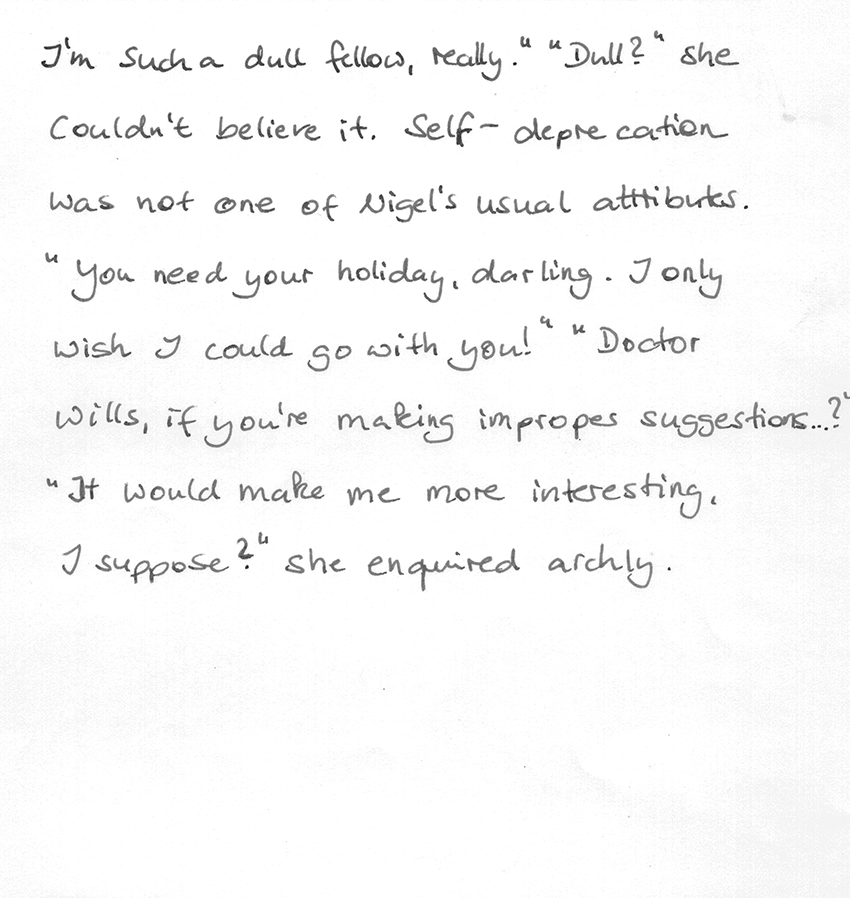 I'm such a dull fellow, really." "Dull?" she
couldn't believe it. Self-deprecation
was not one of Nigel's usual atttibutes.
"You need your holiday, darling. I only
wish I could go with you!" "Doctor
Wills, if you're making impropes suggestions...?"
"It would make me more interesting,
I suppose?" she enquired archly.